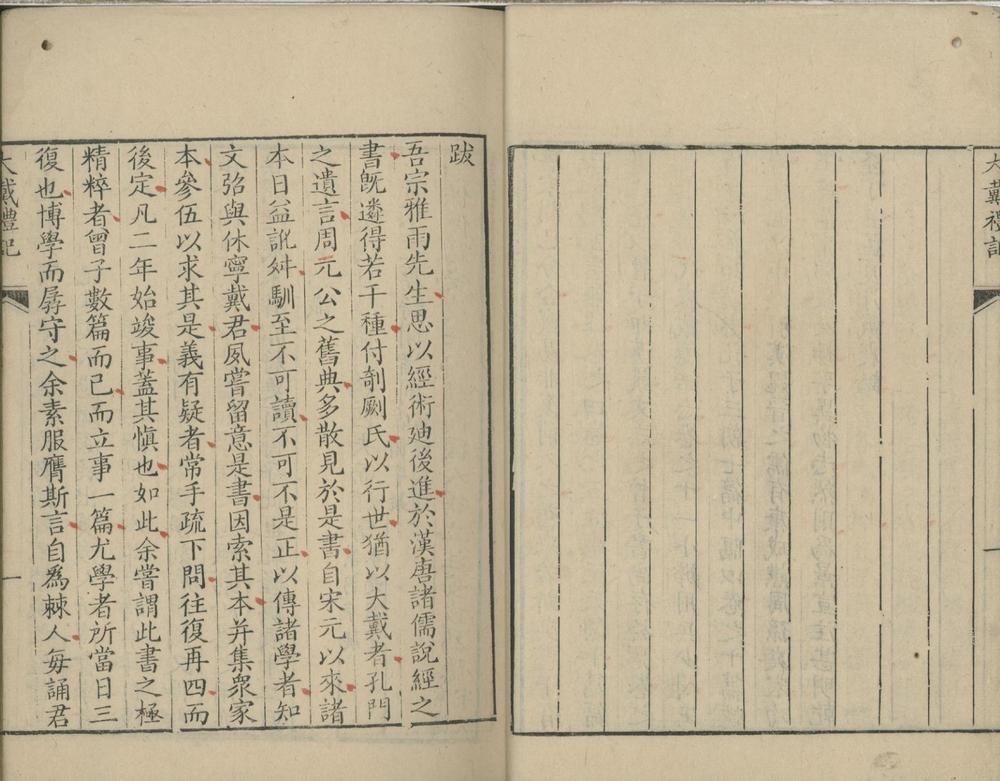 大戴禮記
一
跋
吾宗雅雨先生思以經術廸後進於漢唐諸儒說經之
書旣遴得若干種付剞劂氏以行世猶以大戴者孔門
之遺言周元公之舊典多散見於是書自宋元以來諸
本日益訛舛馴至不可讀不可不是正以傳諸學者知
文弨與休寧戴君夙嘗留意是書因索其本并集衆家
本參伍以求其是義有疑者常手疏下問往復再四而
後定凡二年始竣事蓋其愼也如此余嘗謂此書之極
精粹者曾子數篇而已而立事一篇尤學者所當日三
復也博學而孱守之余素服膺斯言自爲棘人每誦君
大戴禮記
一